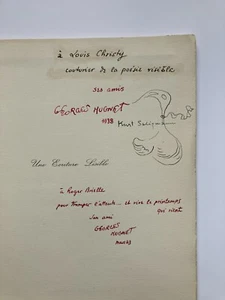 à Louis Christy
couturier de la poésie visible
ses amis
GEORGES HUGNET
1938
Kurt Seligmann
Une Écriture Lisible
à Roger Brielle
pour tromper l'attente... et vive le printemps
qui vient
Son ami
GEORGES
HUGNET